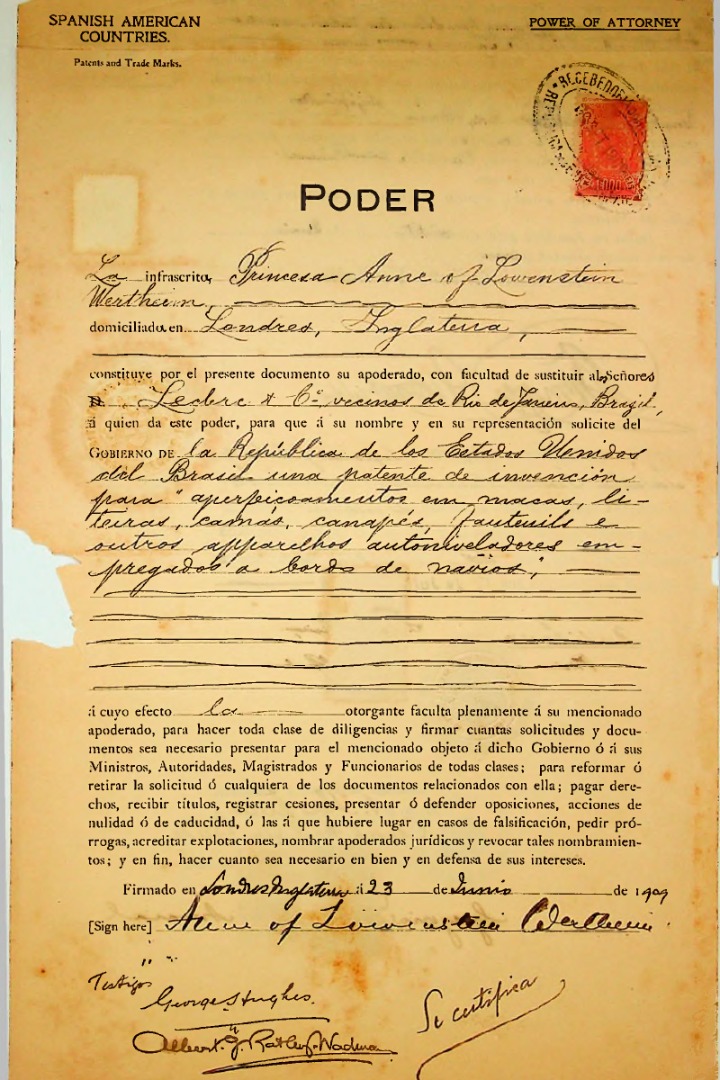 SPANISH AMERICAN
COUNTRIES.
Patents and Trade Marks.
POWER OF ATTORNEY
PODER
La infrascrita, Princesa Anne of Lowenstein
Wertheim,
domiciliada en Londres, Inglaterra,
constituye por el presente documento su apoderado, con facultad de sustituir al Señores
Leclerc & Co. vecinos de Rio de Janeiro, Brazil,
á quien da este poder, para que á su nombre y en su representación solicite del
GOBIERNO DE la República de los Estados Unidos
del Brasil una patente de invención
para "aperfeicoamentos em macas, li-
teiras, camás, canapés, fauteuils e
outros apparelhos autoniveladores em-
pregados a bordo de navios",
á cuyo efecto la otorgante faculta plenamente á su mencionado
apoderado, para hacer toda clase de diligencias y firmar cuantas solicitudes y docu-
mentos sea necesario presentar para el mencionado objeto á dicho Gobierno ó á sus
Ministros, Autoridades, Magistrados y Funcionarios de todas clases; para reformar ó
retirar la solicitud ó cualquiera de los documentos relacionados con ella; pagar dere-
chos, recibir títulos, registrar cesiones, presentar ó defender oposiciones, acciones de
nulidad ó de caducidad, ó las á que hubiere lugar en casos de falsificación, pedir pró-
rrogas, acreditar explotaciones, nombrar apoderados jurídicos y revocar tales nombramien-
tos; y en fin, hacer cuanto sea necesario en bien y en defensa de sus intereses.
Firmado en Londres Inglaterra á 23 de Junio de 1909
[Sign here] Anne of Lowenstein Wertheim
Testigos
George Hughes.
Albert. J.
Se certifica